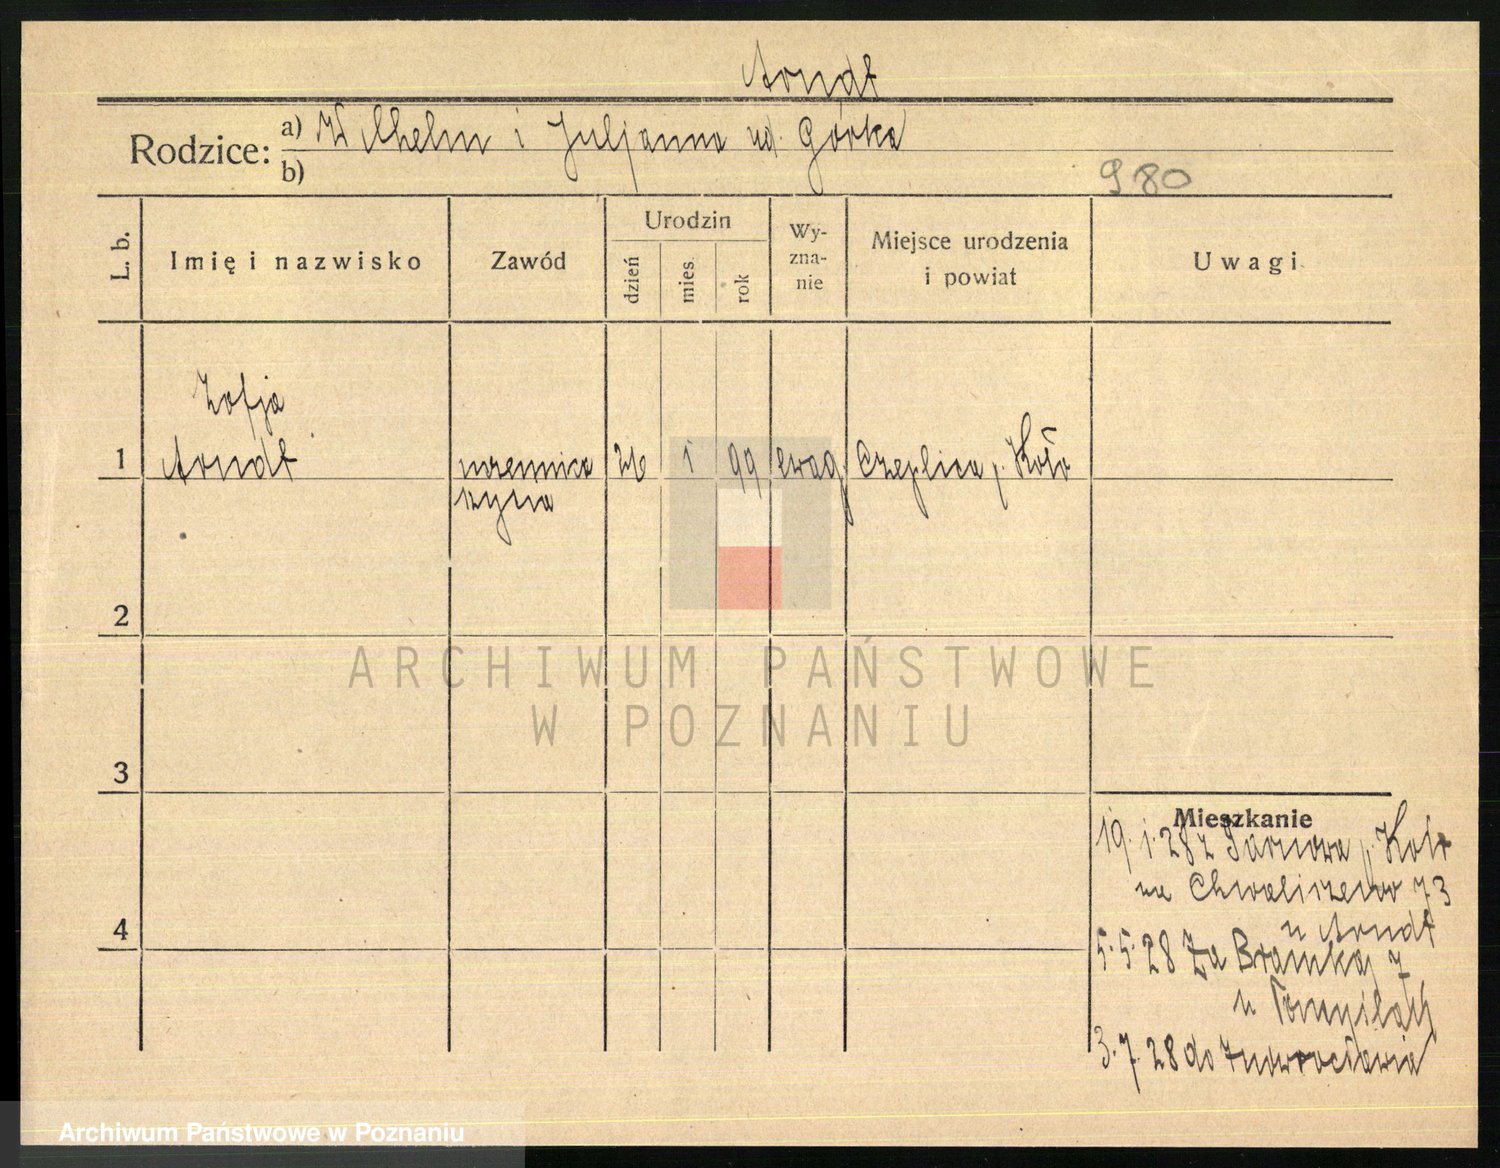 Arndt
Rodzice: a) Wilhelm i Juljanna ud. Górka
b)
980
L. b.
Imię i nazwisko
Zawód
Urodzin
dzień
mies.
rok
Wy-
zna-
nie
Miejsce urodzenia
i powiat
Uwagi
Zofja
1 Arndt uczennica 26 1 99 ewag. Czeplica p. Koło
2
3
4
Mieszkanie
19.1.28 z Tarnowa p. Koło
na Chwaliszewo 73
u Arndt
5.5.28 Za Bramką 7
u
3.7.28 do Inowrocławia
ARCHIWUM PAŃSTWOWE
W POZNANIU
Archiwum Państwowe w Poznaniu